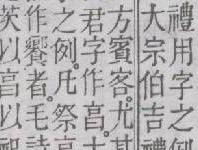 禮用字之例
大宗伯吉禮
方賓客。尤其
君字作亯。士
之例。凡祭亯
作饗者。毛詩
茨以亯以祀